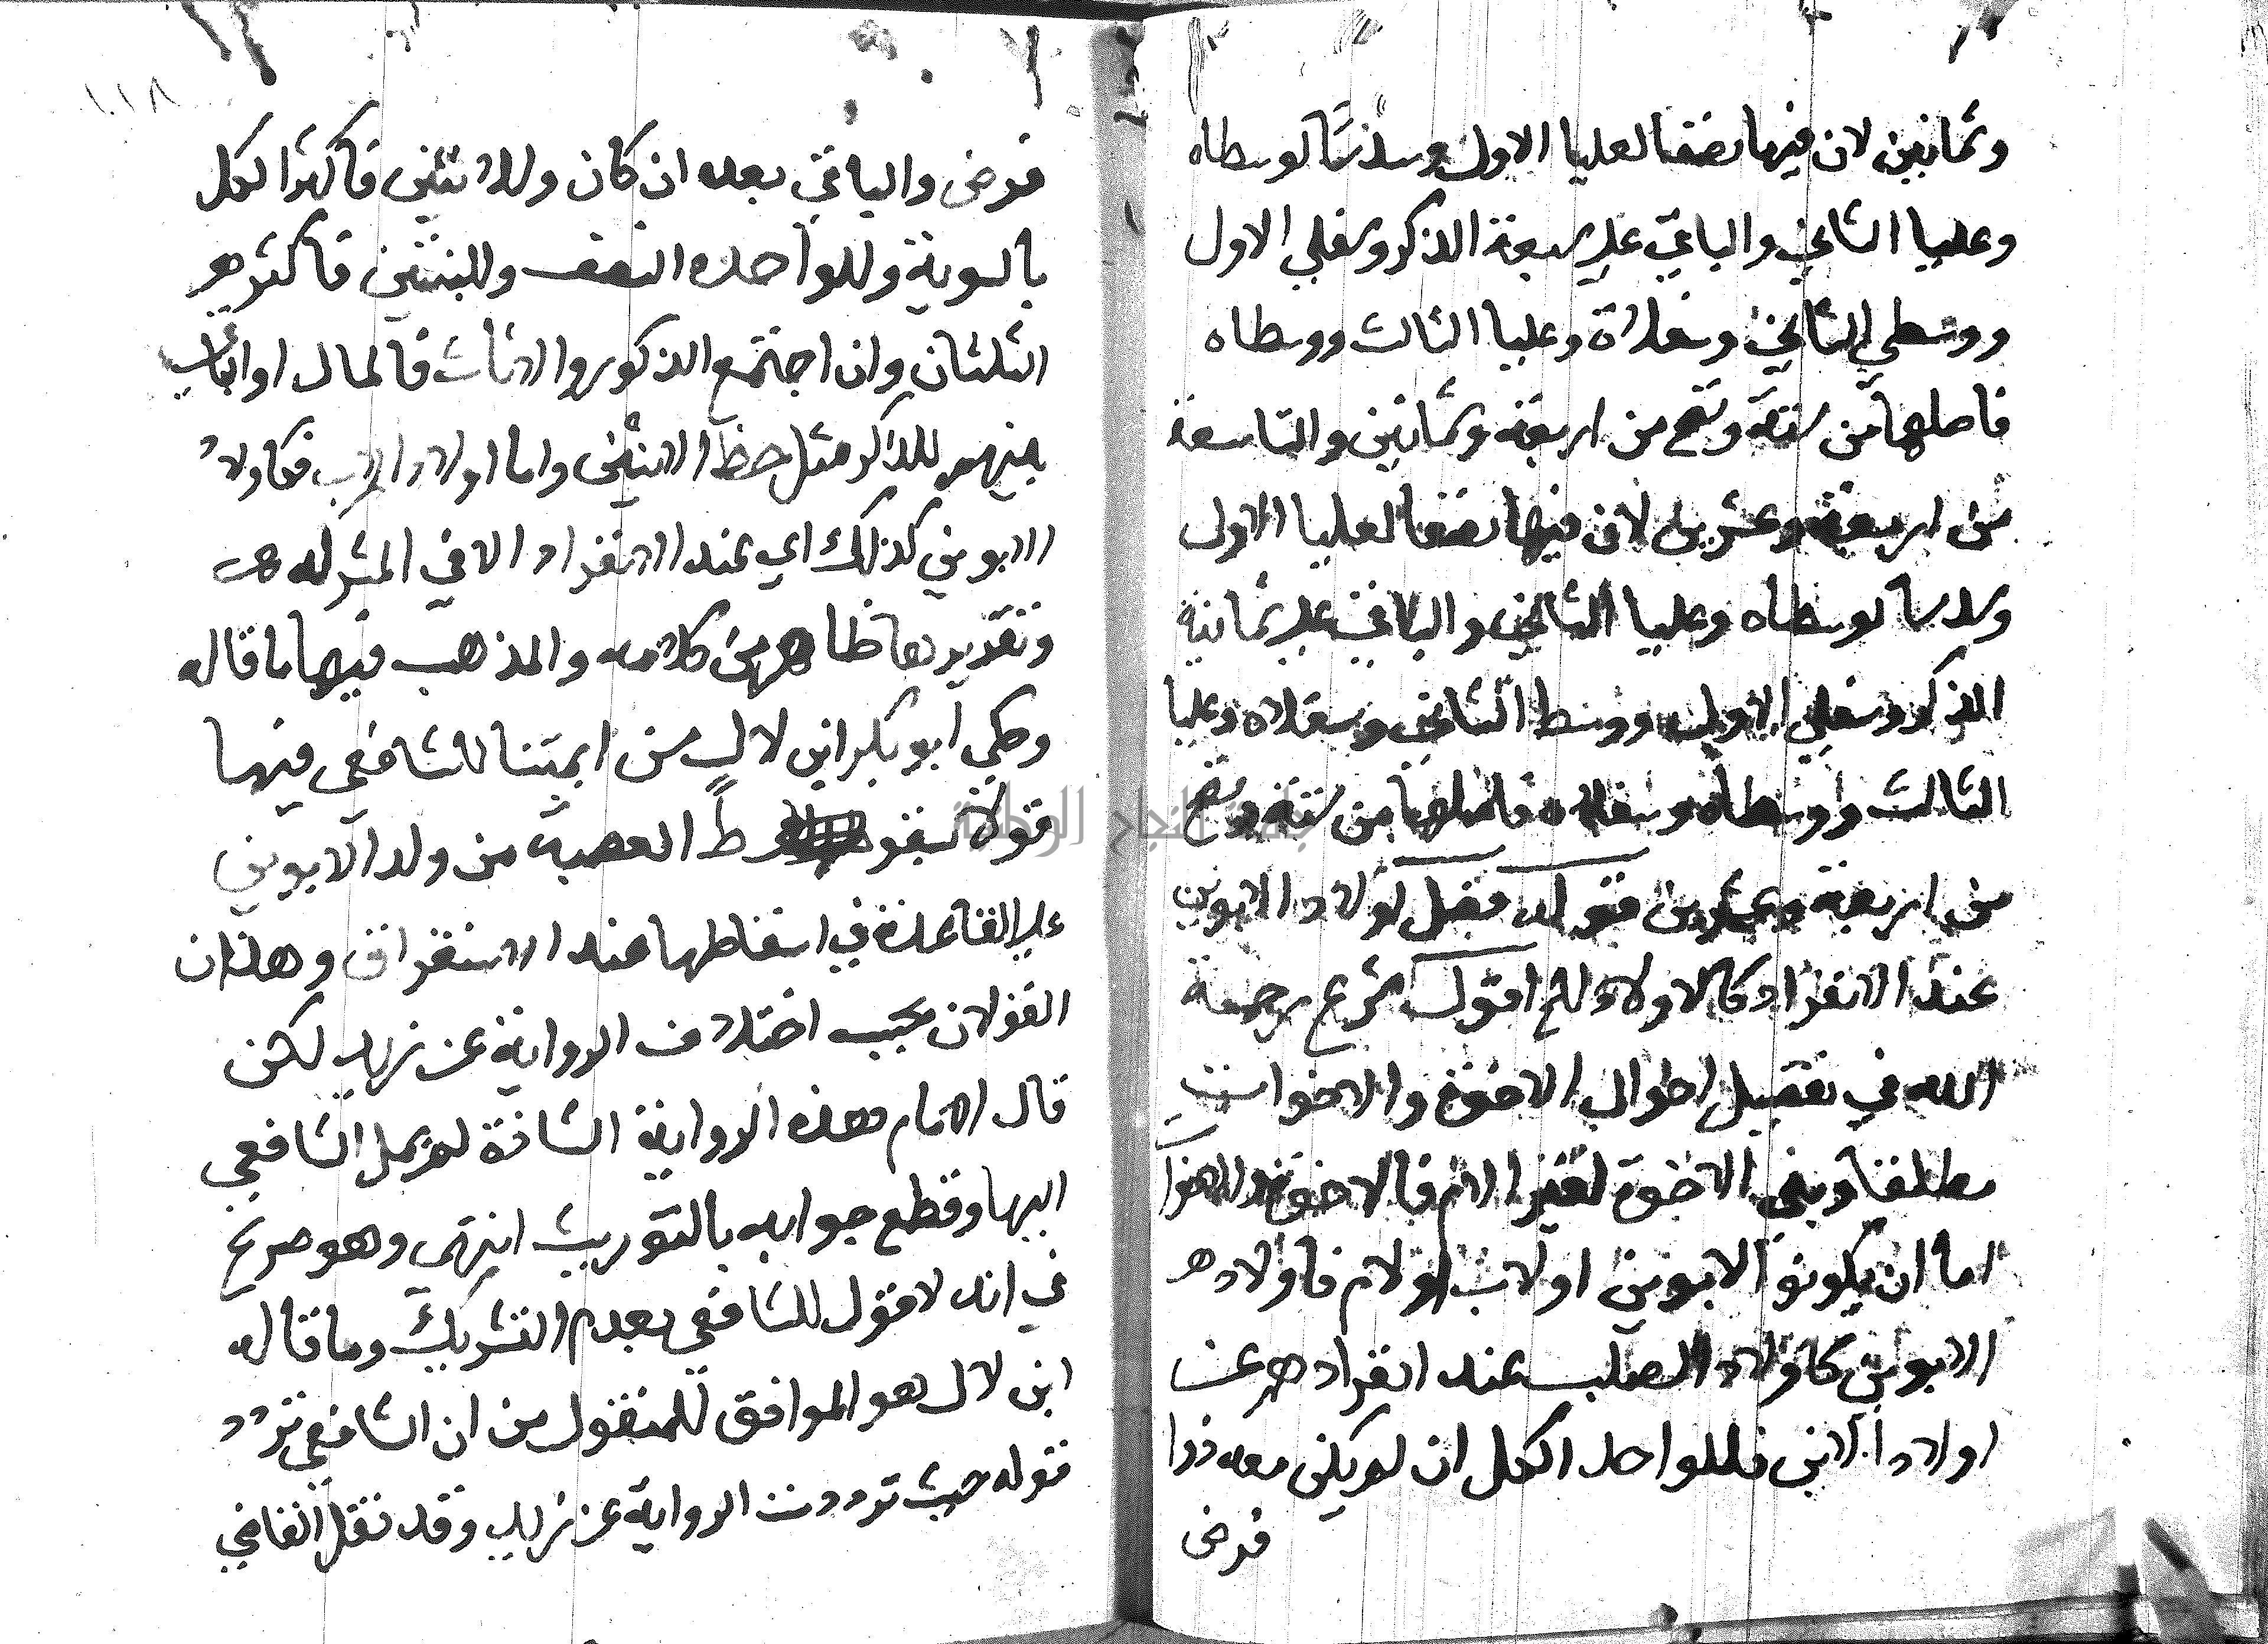 وثمانين لان فيها نصفا لعليا الاول وسدسا لوسطاه
وعليا الثاني والباقي على سبعة الذكر وسفلي الاول
ووسطي الثاني وسفلاه وعليا الثالث ووسطاه
فاصلها من ستة وتصح من اربعة وثمانين والتاسعة
من اربعة وعشرين لان فيها نصفا لعليا الاول
وسدسا لوسطاه وعليا الثاني والباقي على ثمانية
الذكر وسفلي الاول ووسط الثاني وسفلاه وعليا
الثالث ووسطاه وسفلاه فاصلها من ستة وتصح
من اربعة وعشرين قوله فصل اولاد الابوين
عند الانفراد كالاولاد الخ اقول شرع رحمة
الله في تفصيل احوال الاخوة والاخوات
مطلقا وبني الاخوة لغير الام فالاخوة
اما ان يكونو الابوين او لاب او لام فاولاد
الابوين كاولاد الصلب عند انفرادهم عن
اولاد الابن فللواحد الكل ان لم يكن معه ذوا
فرض
١١٨
فرض والباقي بعده ان كان وللاثنين فاكثر الكل
بالسوية وللواحده النصف وللبنتين فاكثرهم
الثلثان وان اجتمع الذكور والاناث فالمال او الباقي
بينهم للذكر مثل حظ الانثيين واما اولاد الاب فكاولاد
الابوين كذلك اي عند الانفراد الا في المشركه
وتقديرها ظاهر من كلامه والمذهب فيها ما قاله
وحكي ابو بكر ابن لال من ايمتنا للشافعي فيها
قولا بسقوط العصبة من ولد الابوين
على القاعدة في اسقاطها عند الاستغراق وهذان
القولان بحسب اختلاف الرواية عن زيد لكن
قال الامام هذه الرواية الشاذة لم يمل الشافعي
اليها وقطع جوابه بالتوريث انتهى وهو صريح
في انه لا قول للشافعي بعدم التشريك وما قاله
ابن لال هو الموافق للمنقول من ان الشافعي تردد
قوله حيث ترددت الرواية عن زيد وقد نقل القاضي
جامعة النجاح الوطنية